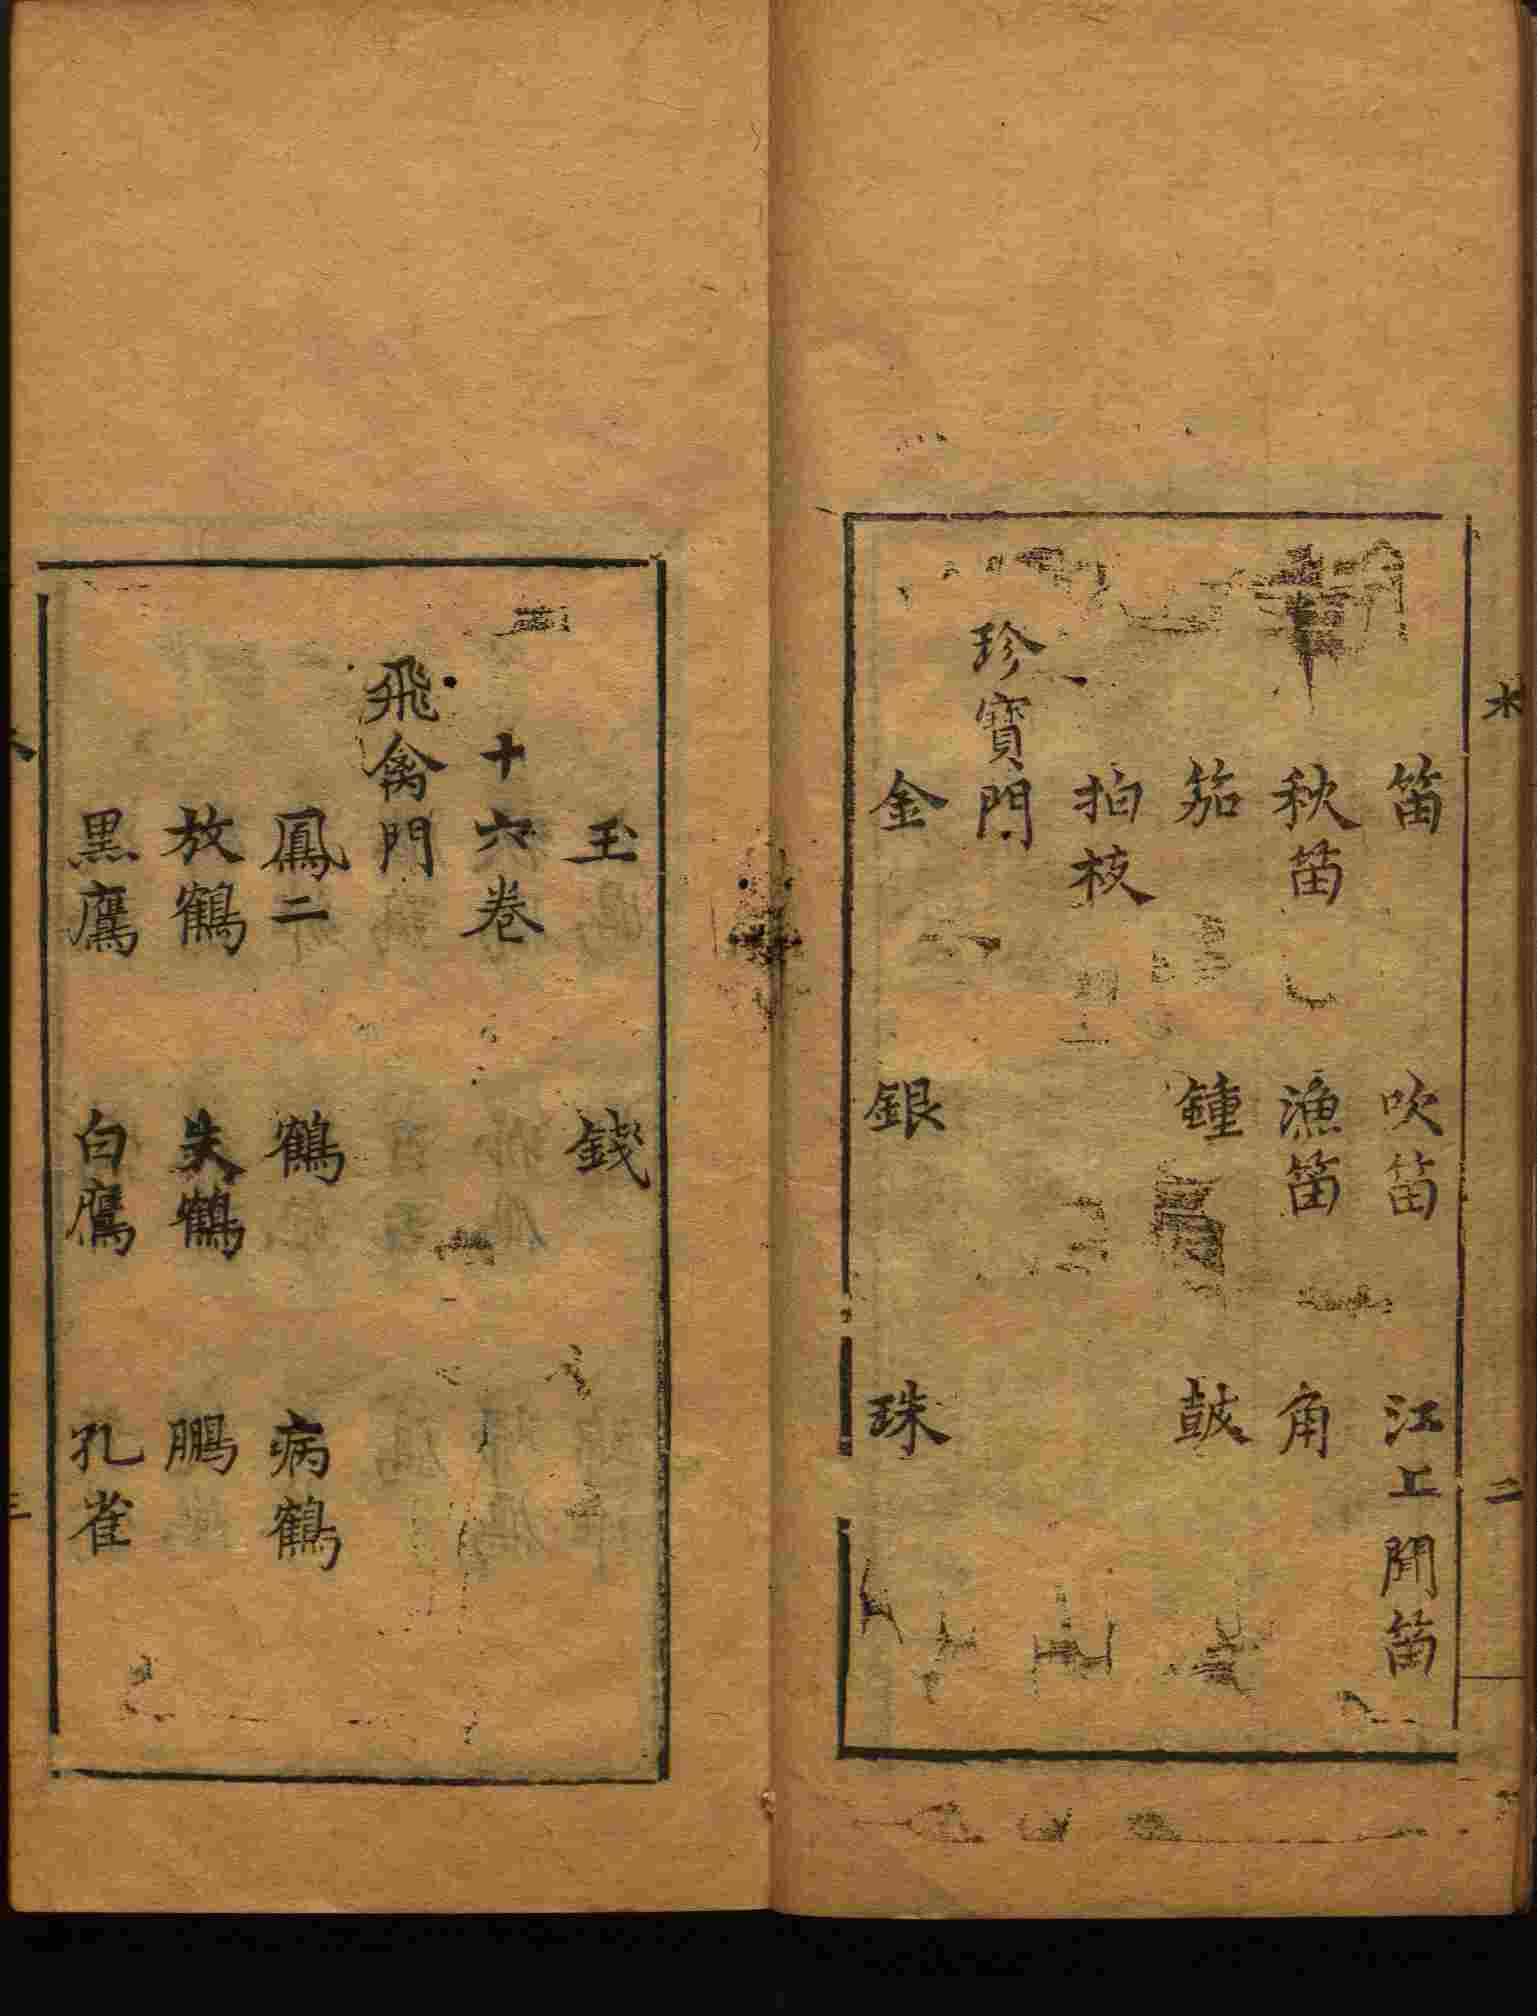 笛　吹笛　江上聞笛
秋笛　漁笛　角
笳　鍾　皷
拍枝
珍寶門
金　銀　珠
玉　錢
十六卷
飛禽門
鳳二　鶴　病鶴
放鶴　失鶴　鵬
黒鷹　白鷹　孔雀